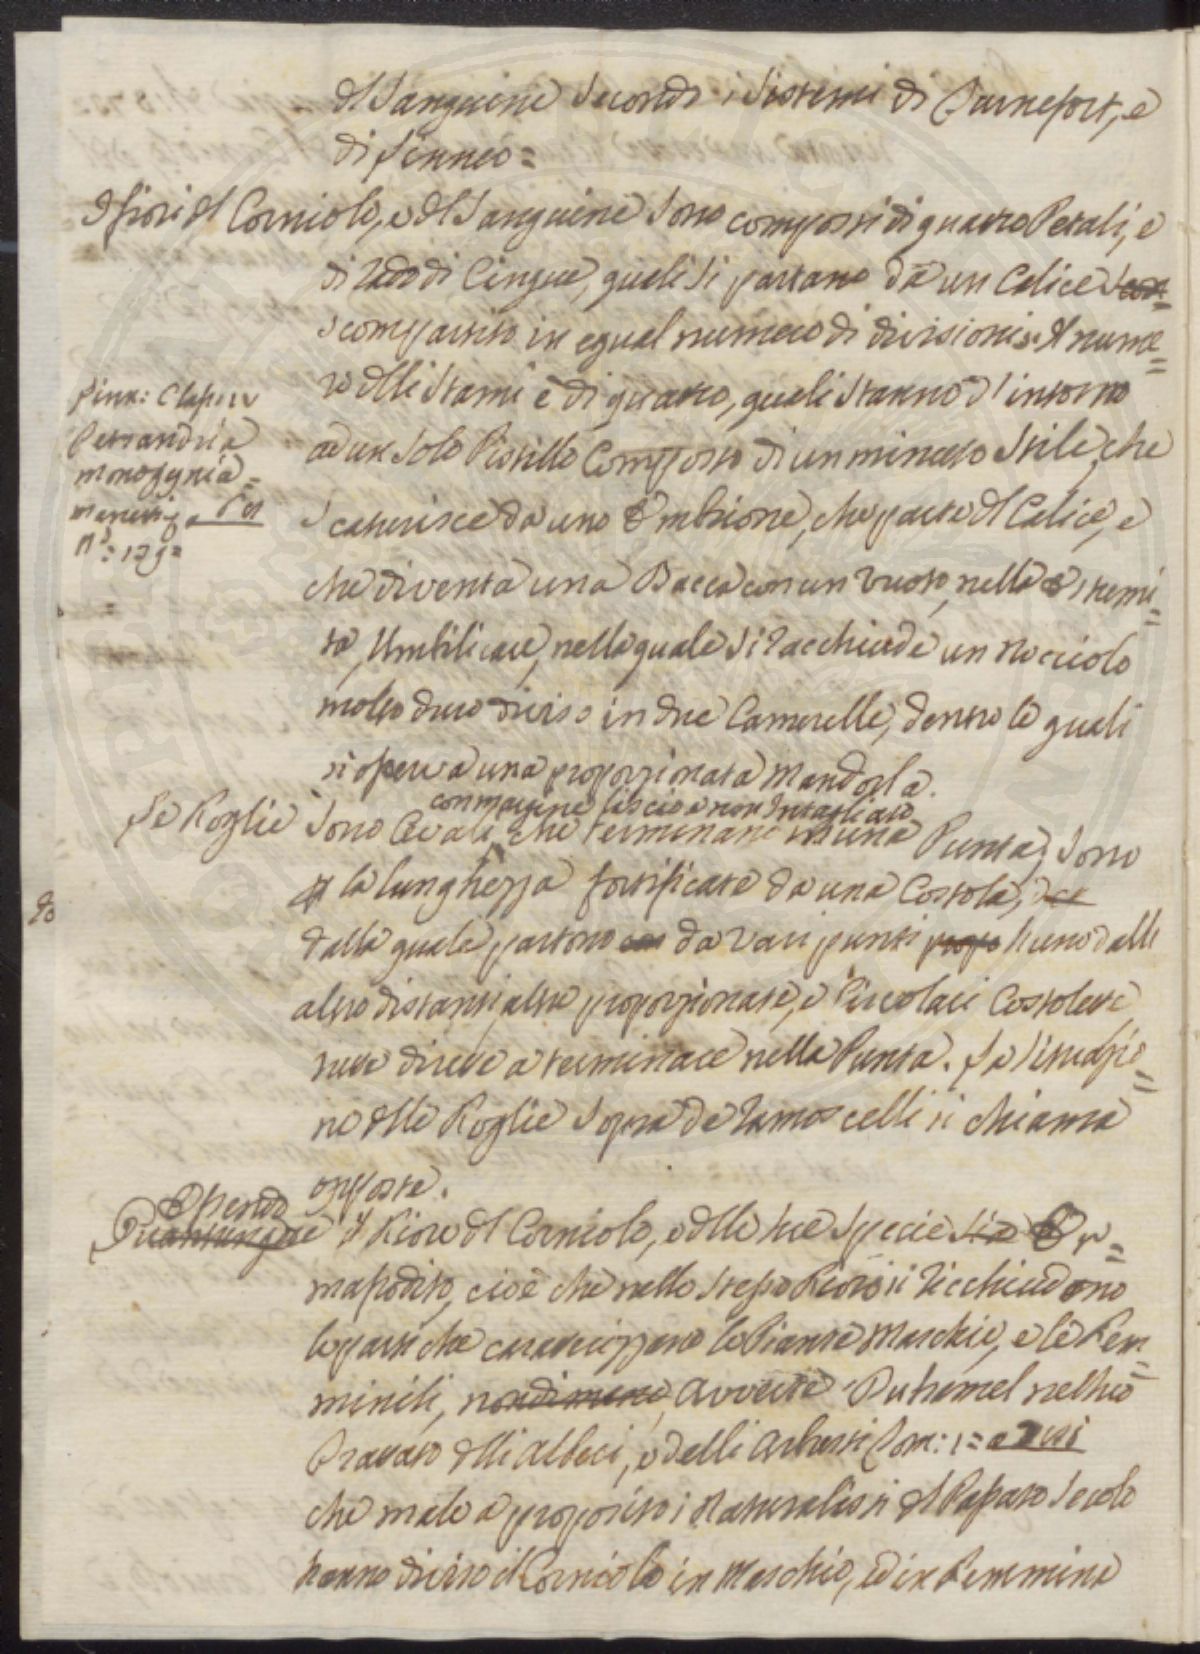 del Sanguine secondo i Sistemi di Turnefort, e
di Linneo =
I fiori del Corniolo, e del Sanguine sono composti di quattro Petali, e
di rado di Cinque, quali si partano da un Calice
scompartito in egual numero di divisioni. Il nume=
ro delli Stami è di quattro, quali stanno d'intorno
Linn: Class: IV
Tetrandria
monogynia =
n°: 139 =
ad un solo Pistillo Composto di un minuto Stile, che
scaturisce da uno Embrione, che parte del Calice, e
che diventa una Bacca con un vuoto, nella estremi=
tà, Umbilicare, nella quale si racchiude un Nocciolo
molto duro diviso in due Camerelle, dentro le quali
si osserva una proporzionata Mandorla.
con margine liscio e non Intagliato
Le Foglie sono Ovali, che terminano in una Punta, sono
p la lunghezza fortificate da una Costola,
dalla quale partono da vari punti l'uno dall
altro distanti, altre proporzionate, e Piccolari Costolette
tutte dirette a terminare nella Punta. La situazio=
ne delle Foglie sopra de ramoscelli si chiama
opposta.
Essendo
Quantunque il Fiore del Corniolo, e delle tue specie sia Er=
mafrodito, cioè che nello stesso Fiore si ricchiudono
le parti che caratterizzano le Piante Maschie, e le Fem=
minili, nondimeno, avverte Duhamel nel suo
Trattato delli Alberi, e delli Arbusti Tom: 1 =
che male a proposito i Naturalisti del Passato Secolo
hanno diviso il Corniolo in Maschio, ed in Femmina